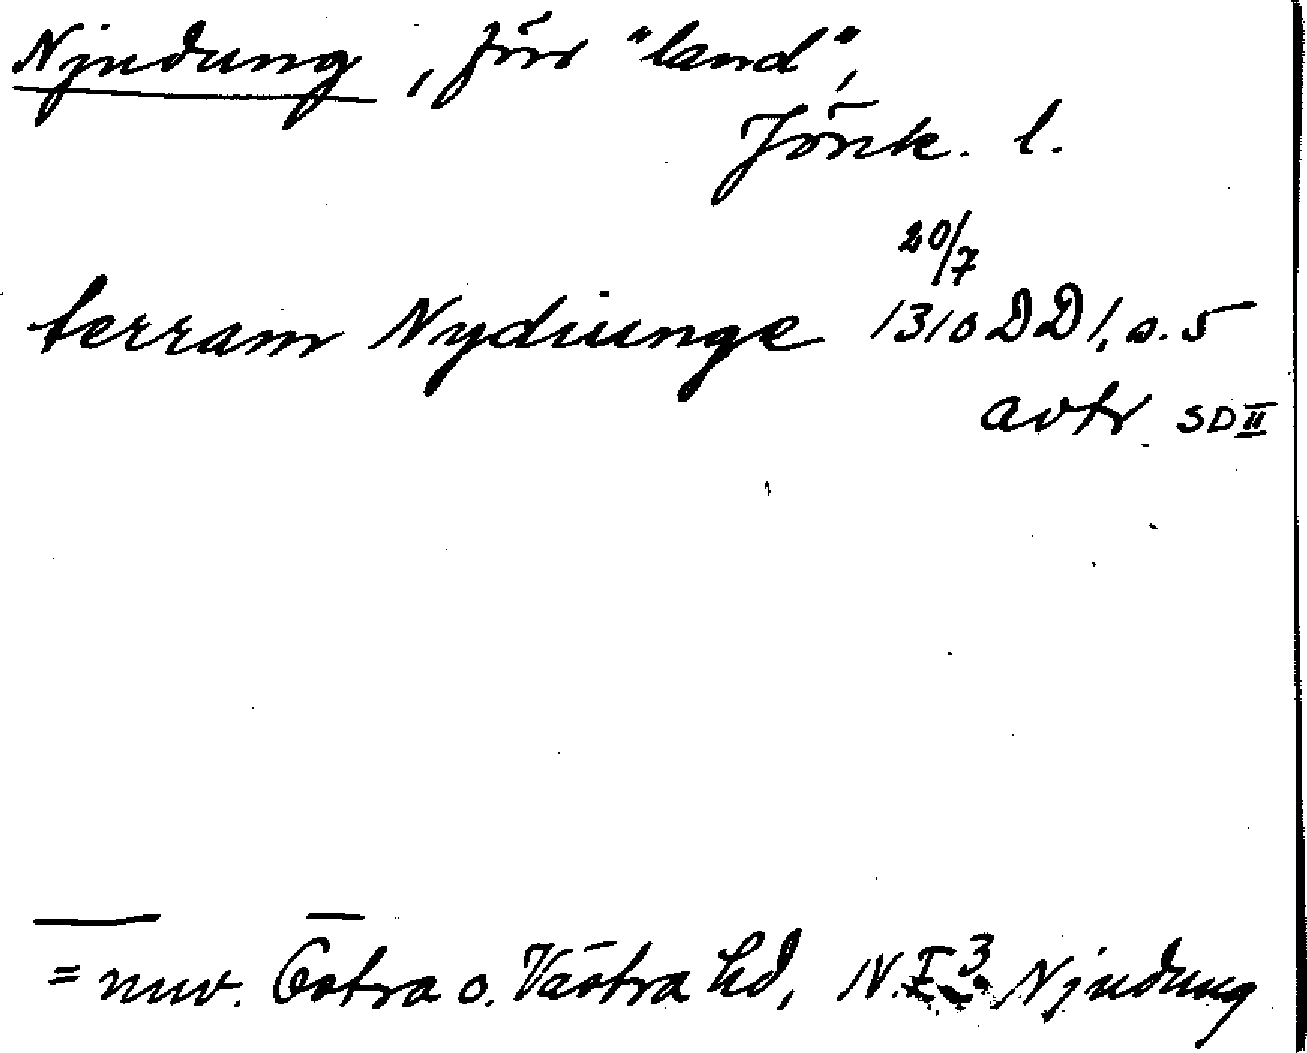 Njudung, förr "land",
Jönk. l.
20/7
terram Nydiunge 1310 DD 1, s. 5
avtr SD II
= nuv. Östra o. Västra hd, N. I 3 Njudung